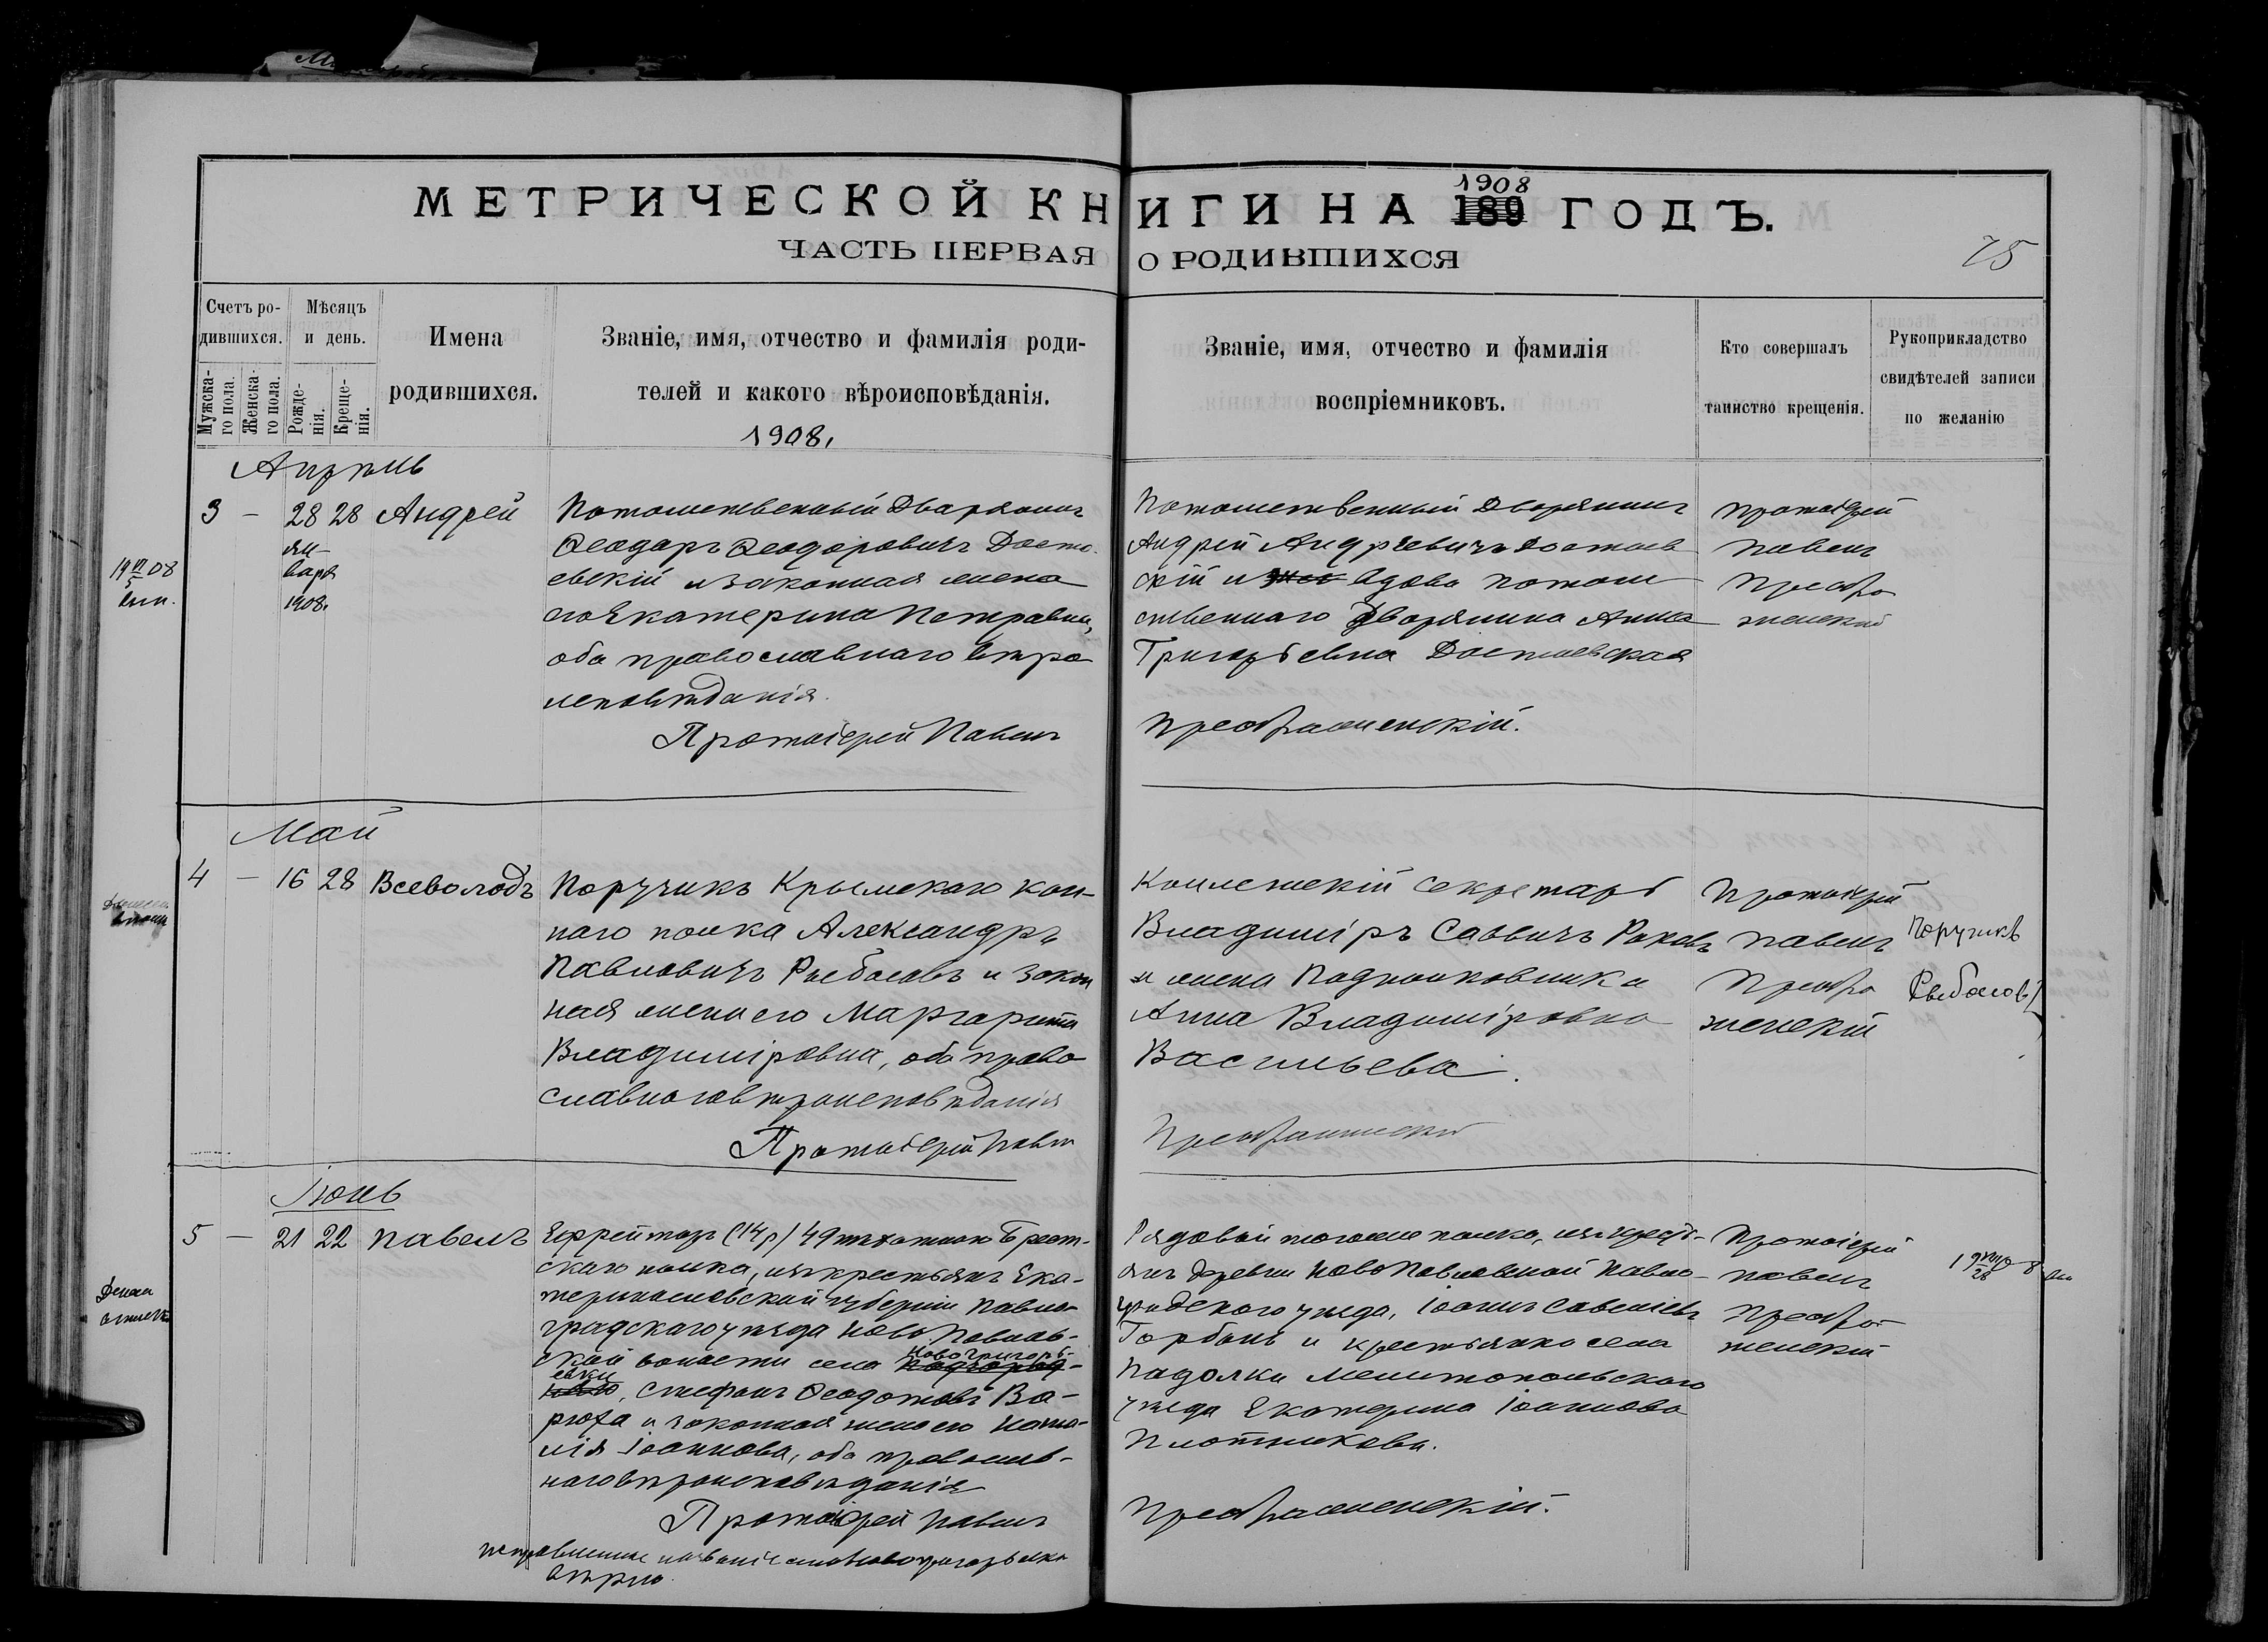 МЕТРИЧЕСКОЙ КНИГИ НА 189 1908 ГОДЪ.
ЧАСТЬ ПЕРВАЯ О РОДИВШИХСЯ
75
Счетъ ро-
дившихся.
Мужска-
го пола.
Женска-
го пола.
Мѣсяцъ
и день.
Рожде-
нія.
Креще-
нія.
Имена
родившихся.
Званіе, имя, отчество и фамилія роди-
телей и какого вѣроисповѣданія.
1908.
Званіе, имя, отчество и фамилія
воспріемниковъ.
Кто совершалъ
таинство крещенія.
Рукоприкладство
свидѣтелей записи
по желанію
Апрѣль
3 — 28 28 Андрей
ян-
варя
1908.
19 VI/5 08
Потомственный Дворянинъ
Ѳеодоръ Ѳеодоровичъ Досто-
евскій и законная жена
его Екатерина Петровна,
оба православнаго вѣро
исповѣданія.
Протоіерей Павелъ
Потомственный Дворянинъ
Андрей Андреевичъ Достоев
скій и вдова потом
ственнаго Дворянина Анна
Григорьевна Достоевская
Преображенскій.
Протоіерей
Павелъ
Преобра
женскій
Май
4 — 16 28 Всеволодъ
Поручикъ Крымскаго кон-
наго полка Александръ
Павловичъ Рыбасовъ и закон
ная жена его Маргарита
Владиміровна, оба право
славнаго вѣроисповѣданія
Протоіерей Павелъ
Коллежскій секретарь
Владиміръ Саввичъ Раковъ
и жена Подполковника
Анна Владиміровна
Васильева.
Преображенскій
Протоіерей
Павелъ
Преобра
женскій
Поручикъ
Рыбасовъ
Іюнь
5 — 21 22 Павелъ
Ефрейторъ (14 р) 49 пѣхотнаго Брест-
скаго полка, изъ крестьянъ Ека-
теринославской губерніи Павло-
градскаго уѣзда Ново Павлов-
ской волости села Подгород-
Новогригорь-
наго
евки
, Стефанъ Ѳеодотовъ Ва-
рюха и законная жена его Ната-
лія Іоаннова, оба православ-
наго вѣроисповѣданія
Протоіерей Павелъ
исправленное названіе села Новогригорьевка
вѣрно.
Рядовой того же полка, изъ крест-
янъ деревни Ново Павловкой Павло-
градскаго уѣзда, Іоаннъ Савеліевъ
Горбань и крестьянка села
Падолки Мелитопольскаго
уѣзда Екатерина Іоаннова
Плотникова.
Преображенскій.
Протоіерей
Павелъ
Преобра
женскій
19 VIII/28 08